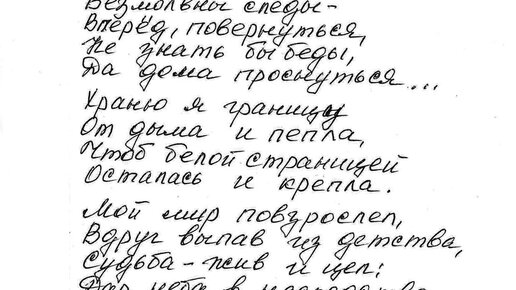 Безмолвны следы –
Вперёд, повернуться,
Не знать бы беды,
Да дома проснуться...
Храню я границу
От дыма и пепла,
Чтоб белой страницей
Осталась и крепла.
Мой мир повзрослел,
Вдруг выпав из детства,
Судьба – жив и цел:
Дар неба в